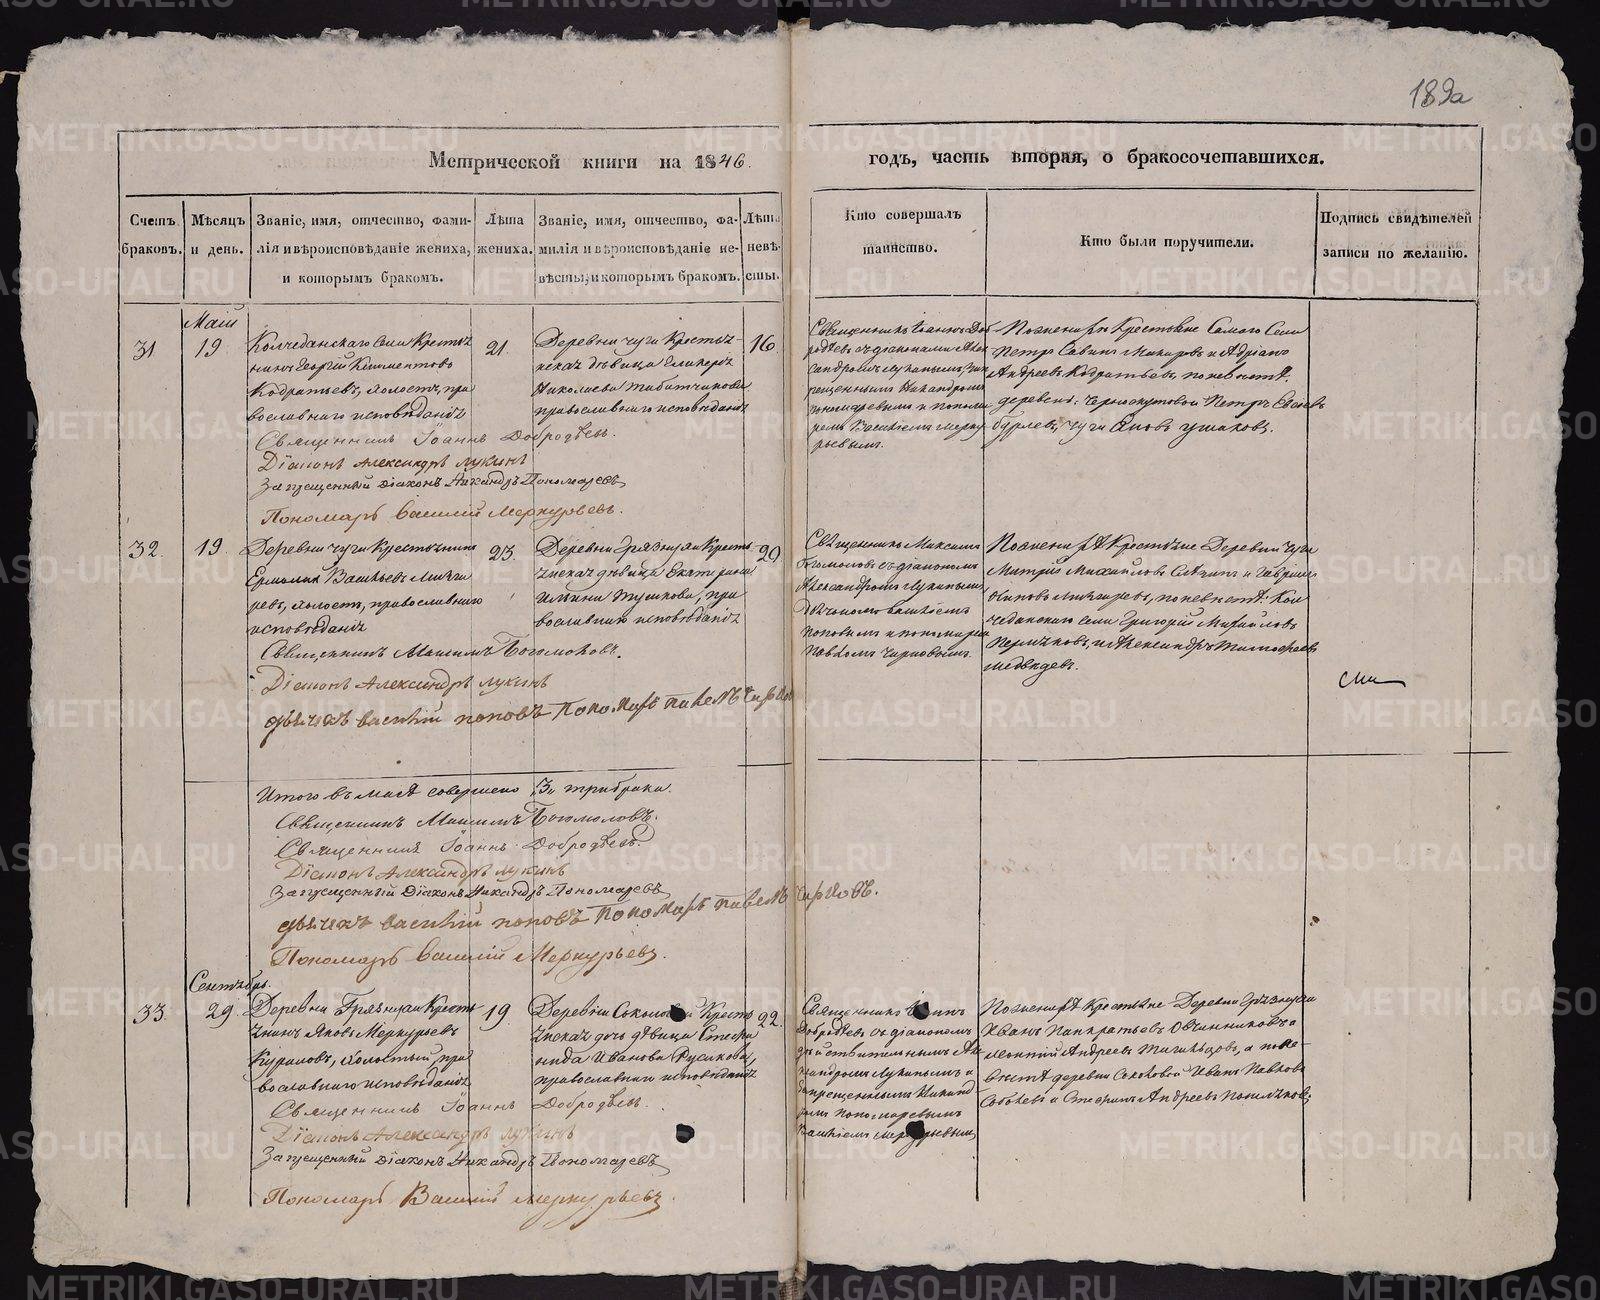 189а
Метрической книги на 1846.
годъ, часть вторая, о бракосочетавшихся.
Счетъ браковъ.
Мѣсяцъ и день.
Званіе, имя, отчество, фами-
лія и вѣроисповѣданіе жениха,
и которымъ бракомъ.
Лѣта жениха.
Званіе, имя, отчество, фа-
милія и вѣроисповѣданіе не-
вѣсты, и которымъ бракомъ.
Лѣта невѣ-
сты.
Кто совершалъ
таинство.
Кто были поручители.
Подпись свидѣтелей
записи по желанію.
Маій
31
19
Колчеданскаго села Крестья
нинъ Георгій Климентовъ
Кодратьевъ, холостъ, пра
вославнаго исповѣданія
21.
Деревни Чуги Крестьян-
ская дѣвица Гликерія
Николаева Табатчикова
православнаго исповѣданія
16
Священникъ Іоаннъ Доб
родѣевъ съ діакономъ Алек
сандромъ Лукинымъ, зап
рещеннымъ Никандромъ
Пономаревымъ и понома
ремъ Васильемъ Мерку
рьевымъ.
По женихѣ Крестьяне Самаго Села
Петръ Савинъ Макаровъ и Адріанъ
Андреевъ Кодратьевъ, по невѣстѣ:
деревень: Черноскутовой Петръ
Бурлевъ, Чуги Яковъ Ушаковъ.
Священникъ Іоаннъ Добродѣевъ.
Діаконъ Александръ Лукинъ
Запрещенный Діаконъ Никандръ Пономаревъ
Пономарь Василій Меркурьевъ.
32.
19
Деревни Чуги Крестьянинъ
Ермолай Васильевъ
холостъ, православнаго
исповѣданія
23.
Деревни Грязнухи Кресть
янская дѣвица Екатерина
пра
вославнаго исповѣданія
20
Священникъ Максимъ
Богомоловъ съ діакономъ
Александромъ Лукинымъ,
дьячкомъ Васильемъ
Поповымъ и пономаремъ
Павломъ Чирковымъ.
По женихѣ Крестьяне Деревни Чуги
Митрій Михайловъ и Гаврило
по невѣстѣ: Кол
чеданскаго села Григорій Михайловъ
и Александръ Тимофеевъ
Медведевъ.
Священникъ Максимъ Богомоловъ.
Діаконъ Александръ Лукинъ
дьячекъ василій поповъ Пономарь павелъ Чирков
Итого въ маіѣ совершено „3„ три брака.
Священникъ Максимъ Богомоловъ.
Священникъ Іоаннъ Добродѣевъ.
Діаконъ Александръ Лукинъ
Запрещенный Діаконъ Никандръ Пономаревъ
дьячекъ василій поповъ Пономарь павелъ чирковъ.
Пономарь Василій Меркурьевъ.
Сентябрь.
33.
29.
Деревни Грязнухи Кресть
янинъ Яковъ Меркурьевъ
Кириловъ, холостый, пра
вославнаго исповѣданія
19
Деревни Соколовой Кресть
янская дочь дѣвица Стефа
нида Иванова Русакова,
православнаго исповѣданія
22.
Священникъ Іоаннъ
Добродѣевъ съ діакономъ
дѣйствительнымъ Але
ксандромъ Лукинымъ и
запрещеннымъ Никанд
ромъ Пономаревымъ
Васильемъ Меркурьевымъ
По женихѣ Крестьяне Деревни Грязнухи
Иванъ Панкратьевъ Овчинниковъ и
Леонтій Андреевъ а по не-
вѣстѣ деревни Соколовой Иванъ Павловъ
и Стефанъ Андреевъ
Священникъ Іоаннъ Добродѣевъ.
Діаконъ Александръ Лукинъ
Запрещенный Діаконъ Никандръ Пономаревъ
Пономарь Василій Меркурьевъ.
METRIKI.GASO-URAL.RU